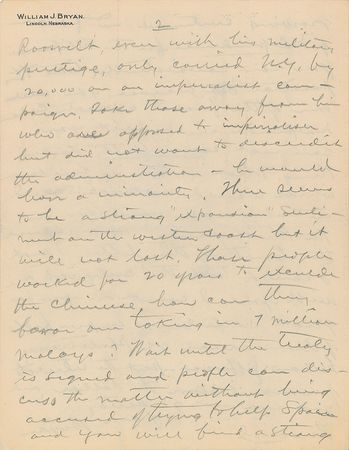 WILLIAM J. BRYAN.
LINCOLN, NEBRASKA.
2
Roosvelt, even with his military
prestige, only carried N.Y. by
20,000 on an imperialist cam-
paign. Take those away from him
who are opposed to imperialism
but did not want to discredit
the administration & he would
have a minority. There seems
to be a strong "expansion" senti-
ment on the western coast but it
will not last. Those people
worked for 20 years to exclude
the Chinese, how can they
favor our taking in 7 million
malays? Wait until the treaty
is signed and people can dis-
cuss the matter without being
accused of trying to help Spain
and you will find a strong